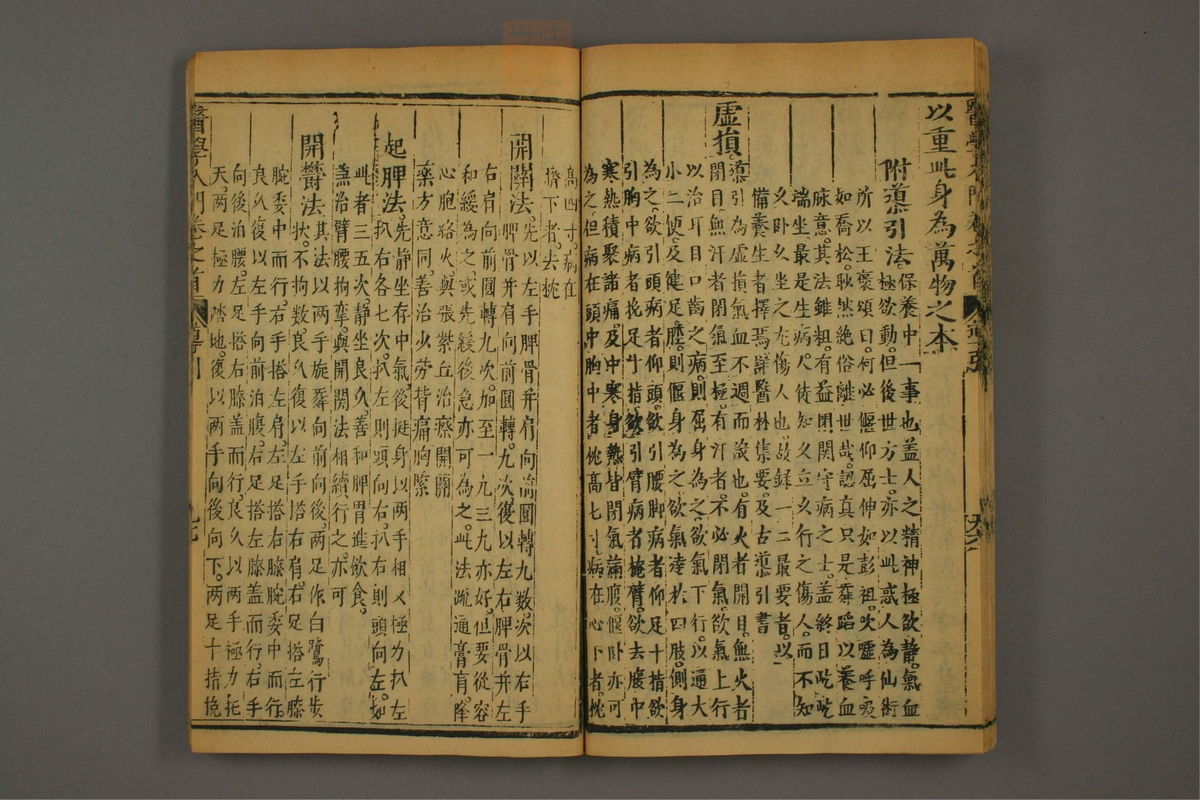 以重此身為萬物之本
附導引法保養中一事也蓋人之精神極欲靜氣血
極欲動但後世方士亦以此惑人為仙術
所以王褒頌曰何必偃仰屈伸如彭祖吹噓呼吸
如喬松眇然絕俗離世哉認真只是舞蹈以養血
脉意其法雖粗有益閉關守病之士蓋終日屹屹
端坐最是生病人徒知久立久行之傷人而不知
久臥久坐之尤傷人也故錄一二最要者以
備養生者擇焉詳醫林集要及古導引書
虛損導引為虛損氣血不週而設也有火者開目無火者
閉目無汗者閉氣至極有汗者不必閉氣欲氣上行
以治耳目口齒之病則屈身為之欲氣下行以通大
小二便及健足脛則偃身為之欲氣達於四肢側身
為之欲引頭病者仰頭欲引腰脚病者仰足十指欲
引胸中病者挽足十指欲引臂病者掩臂欲去腹中
寒熱積聚諸痛及中寒身熱皆閉氣滿腹偃臥亦可
為之但病在頭中胸中者枕高七寸病在心下者枕
高四寸病在
臍下者去枕
開關法先以左手脾骨并肩向前圓轉九數次以右手
脾骨并肩向前圓轉九次復以左右脾骨并左
右肩向前圓轉九次加至一九三九亦好但要從容
和緩為之或先緩後急亦可為之此法疏通膏肓降
心胞絡火與張紫丘治瘵開關
藥方意同善治少勞背痛胸緊
起脾法先靜坐存中氣後挺身以兩手相乂極力扒左
扒右各七次扒左則頭向右扒右則頭向左如
此者三五次靜坐良久善和脾胃進飲食
兼治臂腰拘攣與開關法相續行之亦可
開鬱法其法以兩手旋舞向前向後兩足作白鷺行步
狀不拘數良久復以左手搭右肩右足搭左膝
腕委中而行右手搭左肩左足搭右膝腕委中而行
良久復以左手向前泊腹右足搭左膝蓋而行右手
向後泊腰左足搭右膝蓋而行良久以兩手極力托
天兩足極力踏地復以兩手向後向下兩足十指挽
醫學入門卷之首
導引